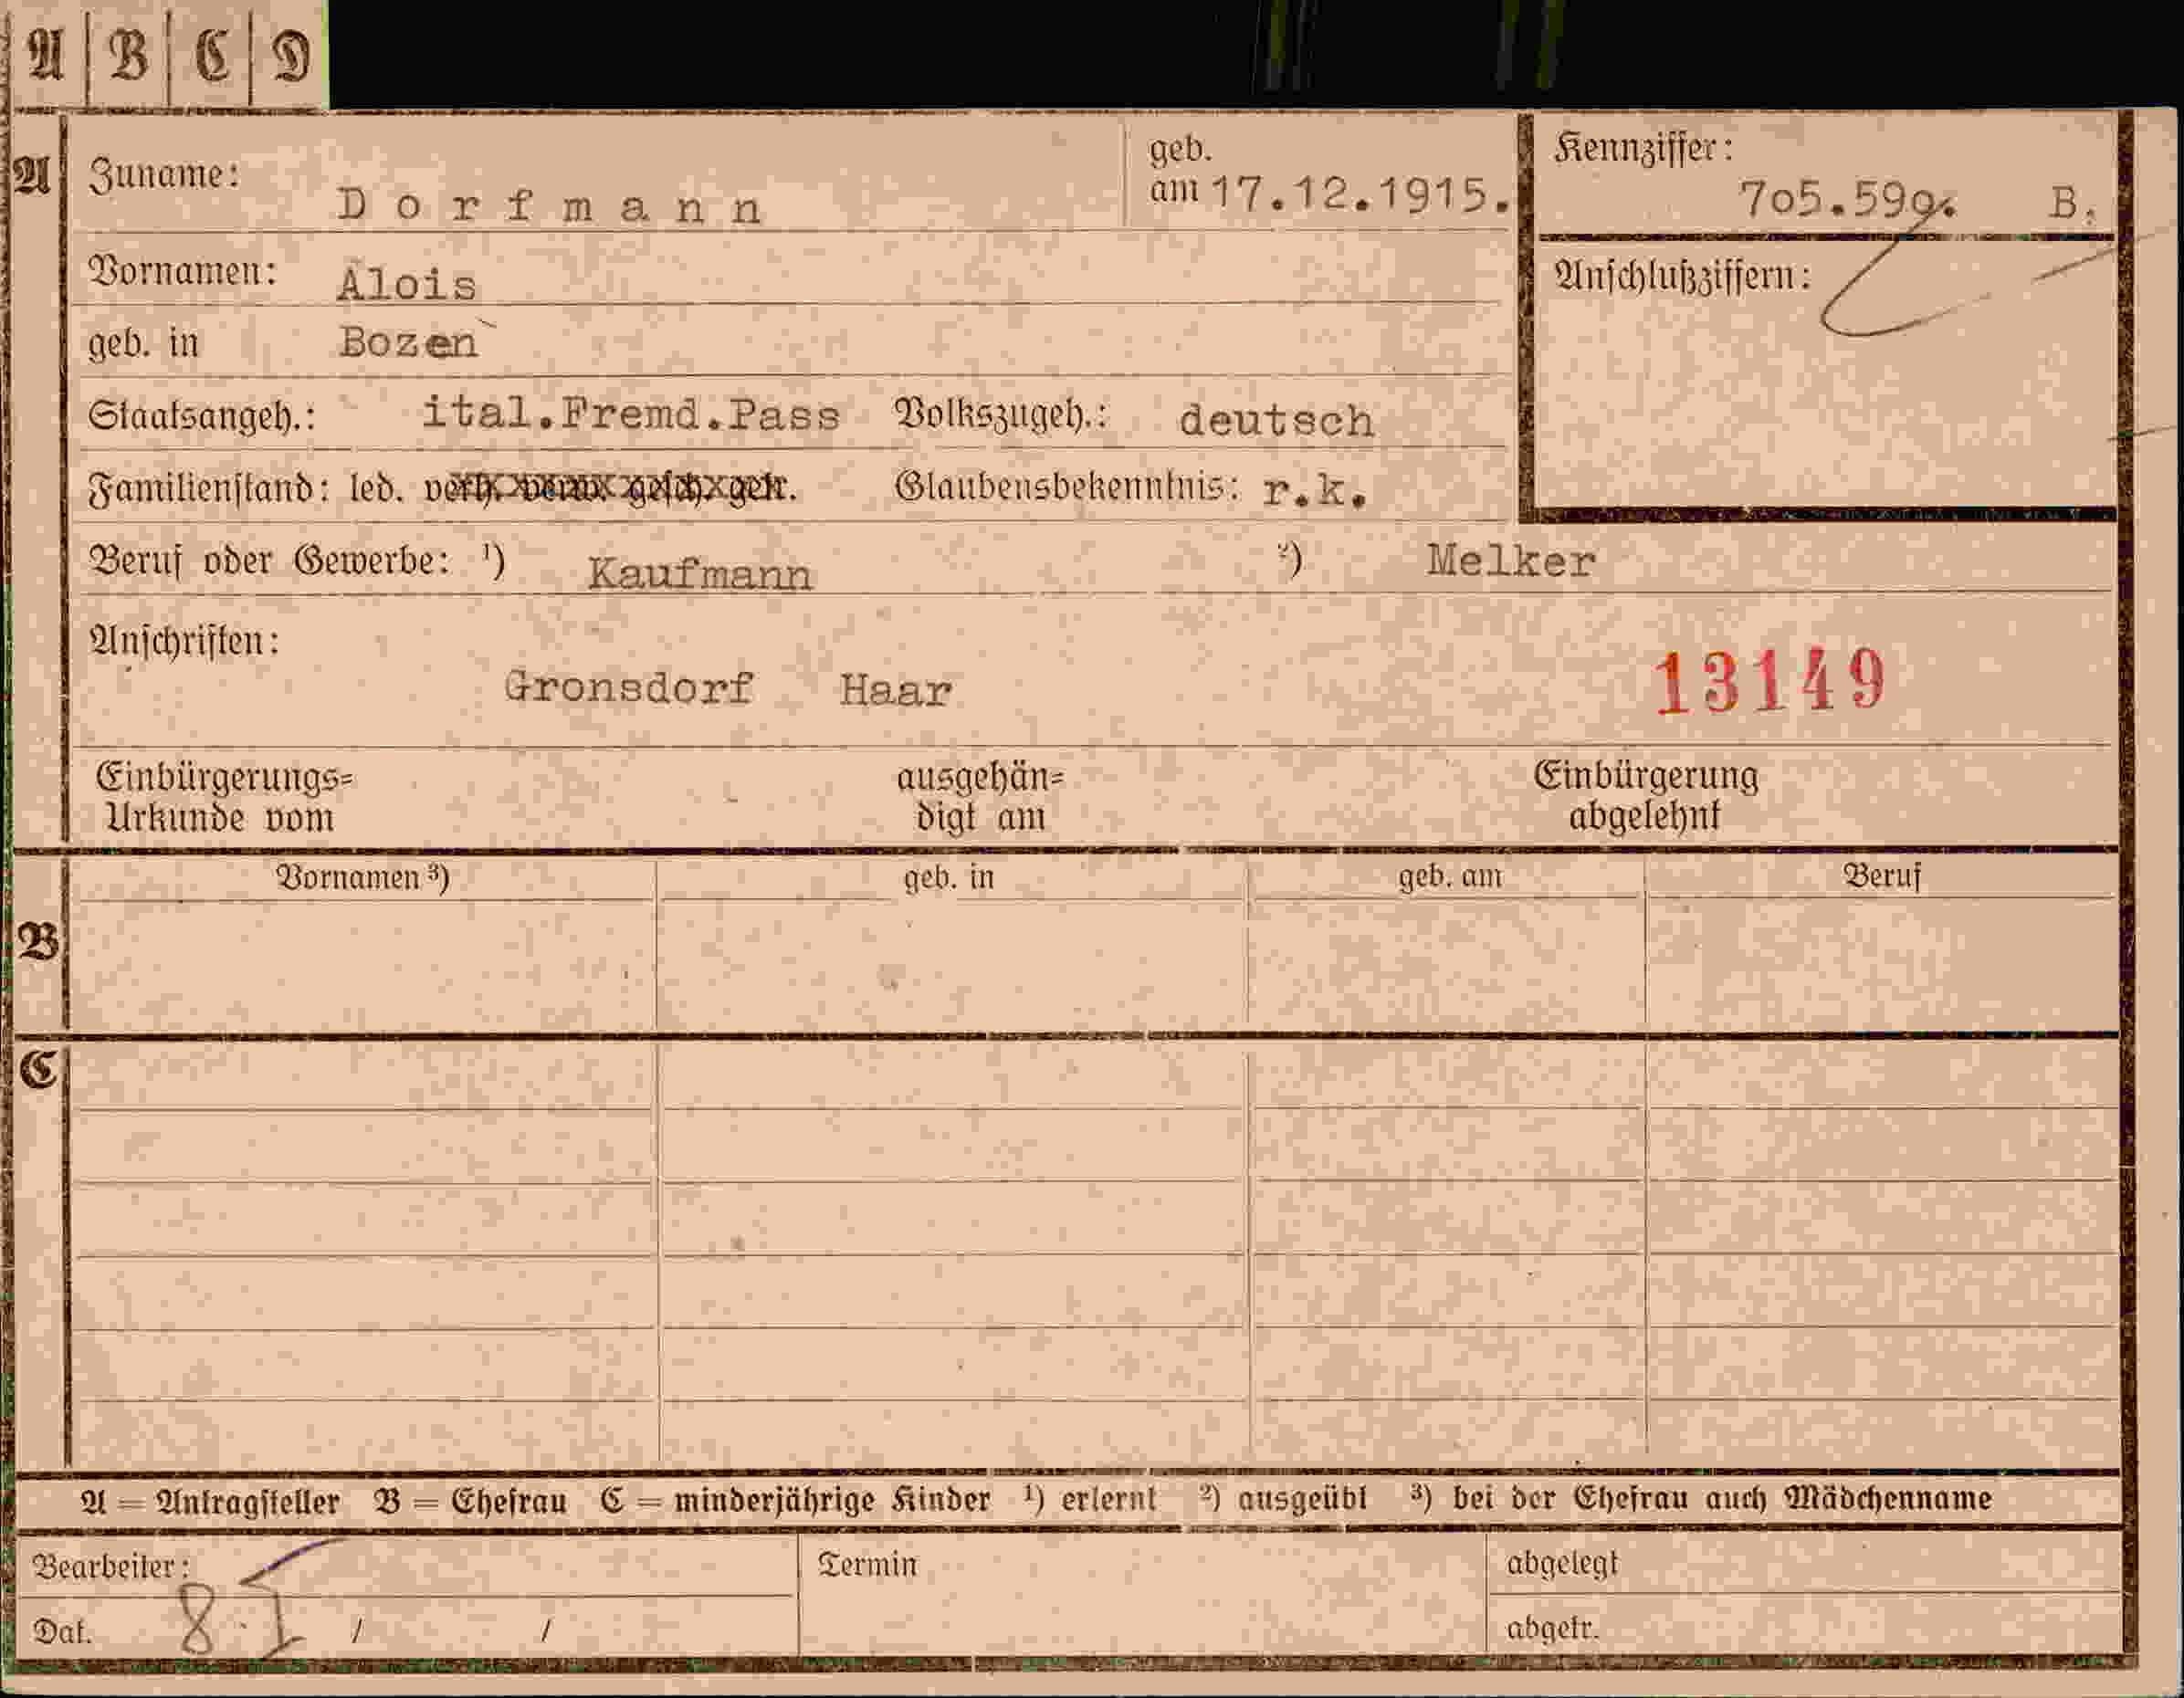 A B C D
A Zuname: Dorfmann geb. am 17.12.1915.
Kennziffer: 705.599. B.
Vornamen: Alois
Anschlußziffern:
geb. in Bozen
Staatsangeh.: ital.Fremd.Pass Volkszugeh.: deutsch
Familienstand: led. verh. verw. gesch. getr. Glaubensbekenntnis: r.k.
Beruf oder Gewerbe: ¹) Kaufmann ²) Melker
Anschriften:
Gronsdorf Haar 13149
Einbürgerungs= ausgehän= Einbürgerung
Urkunde vom digt am abgelehnt
B Vornamen ³) geb. in geb. am Beruf
C
A = Antragsteller B = Ehefrau C = minderjährige Kinder ¹) erlernt ²) ausgeübt ³) bei der Ehefrau auch Mädchenname
Bearbeiter: Termin abgelegt
Dat. 8. I / / abgetr.